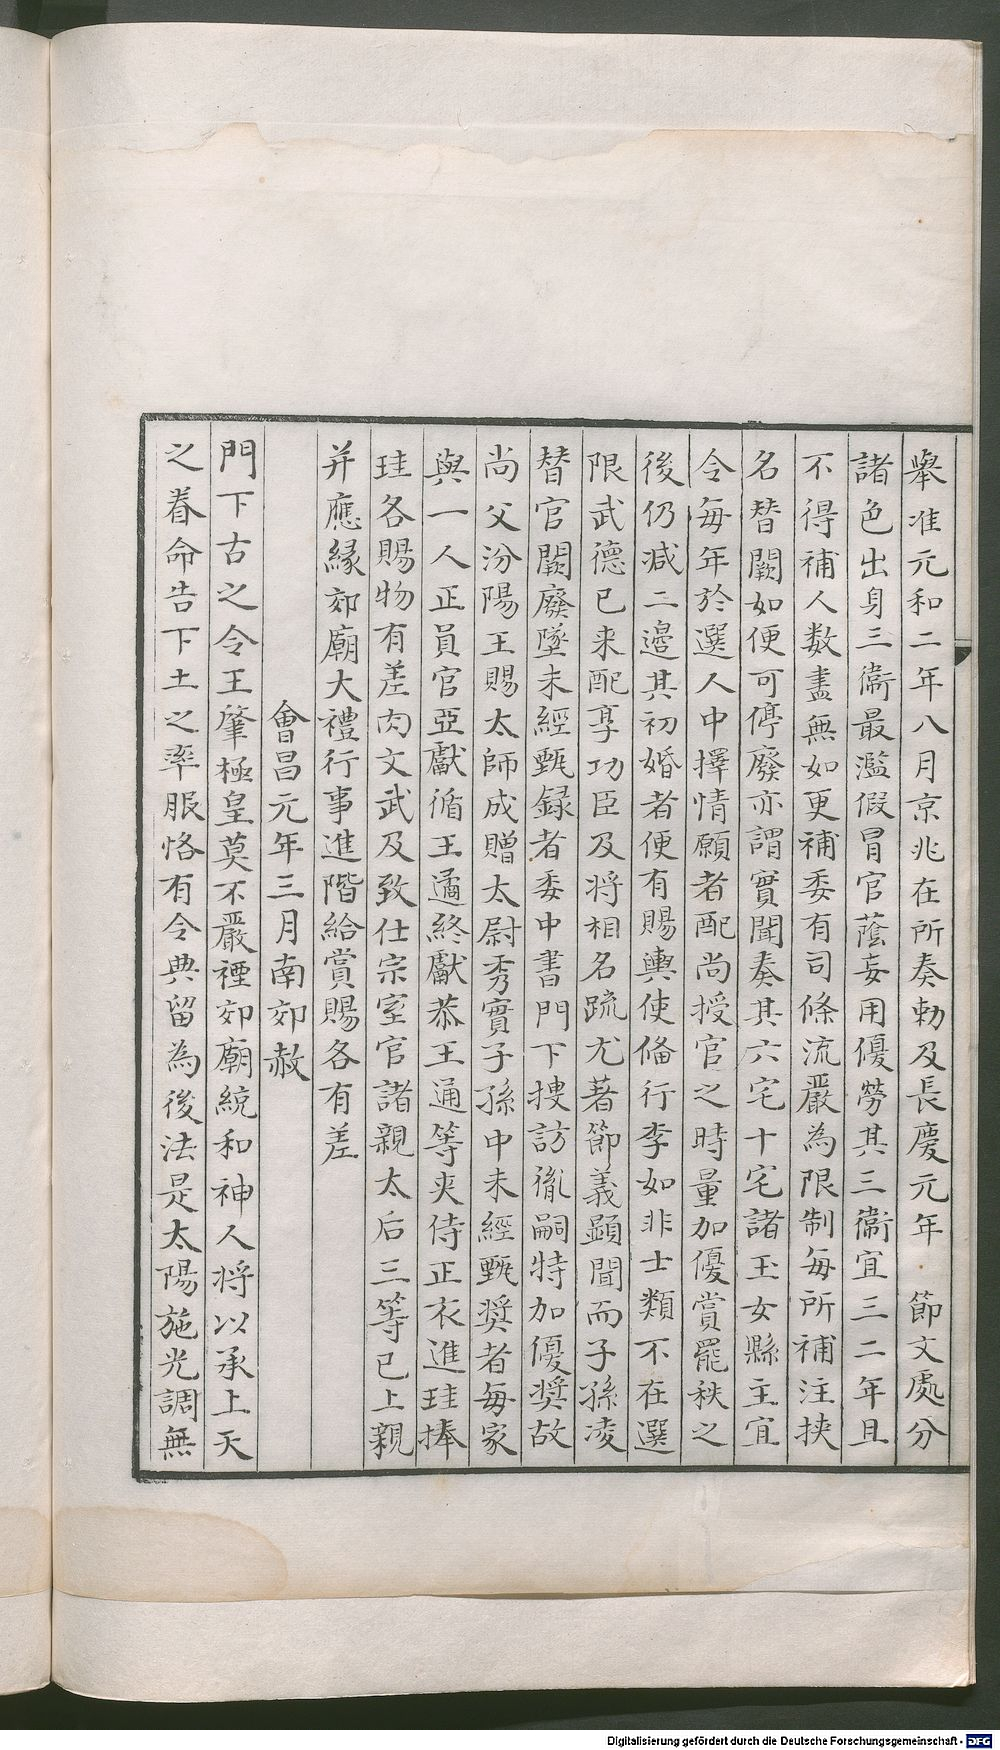 舉准元和二年八月京兆在所奏勅及長慶元年節文處分
諸色出身三衞最濫假冒官蔭妄用優勞其三衞宜三二年且
不得補人数盡無如更補委有司條流嚴為限制每所補注挾
名替闕如便可停廢亦謂實聞奏其六宅十宅諸王女縣主宜
令每年於選人中擇情願者配尚授官之時量加優賞罷秩之
後仍减二邉其初婚者便有賜輿使俻行李如非士類不在選
限武德已来配享功臣及将相名踈尤著節義顯聞而子孫凌
替官闕廢墜未經甄録者委中書門下搜訪胤嗣特加優奨故
尚父汾陽王賜太師成贈太尉秀實子孫中未經甄奨者每家
與一人正員官亞獻循王遹終獻恭王通等夾侍正衣進珪捧
珪各賜物有差内文武及致仕宗室官諸親太后三等已上親
并應緣郊廟大禮行事進階給賞賜各有差
會昌元年三月南郊赦
門下古之令王肇極皇莫不嚴禋郊廟統和神人将以承上天
之眷命告下土之率服恪有令典留為後法是太陽施光調無
Digitalisierung gefördert durch die Deutsche Forschungsgemeinschaft - DFG